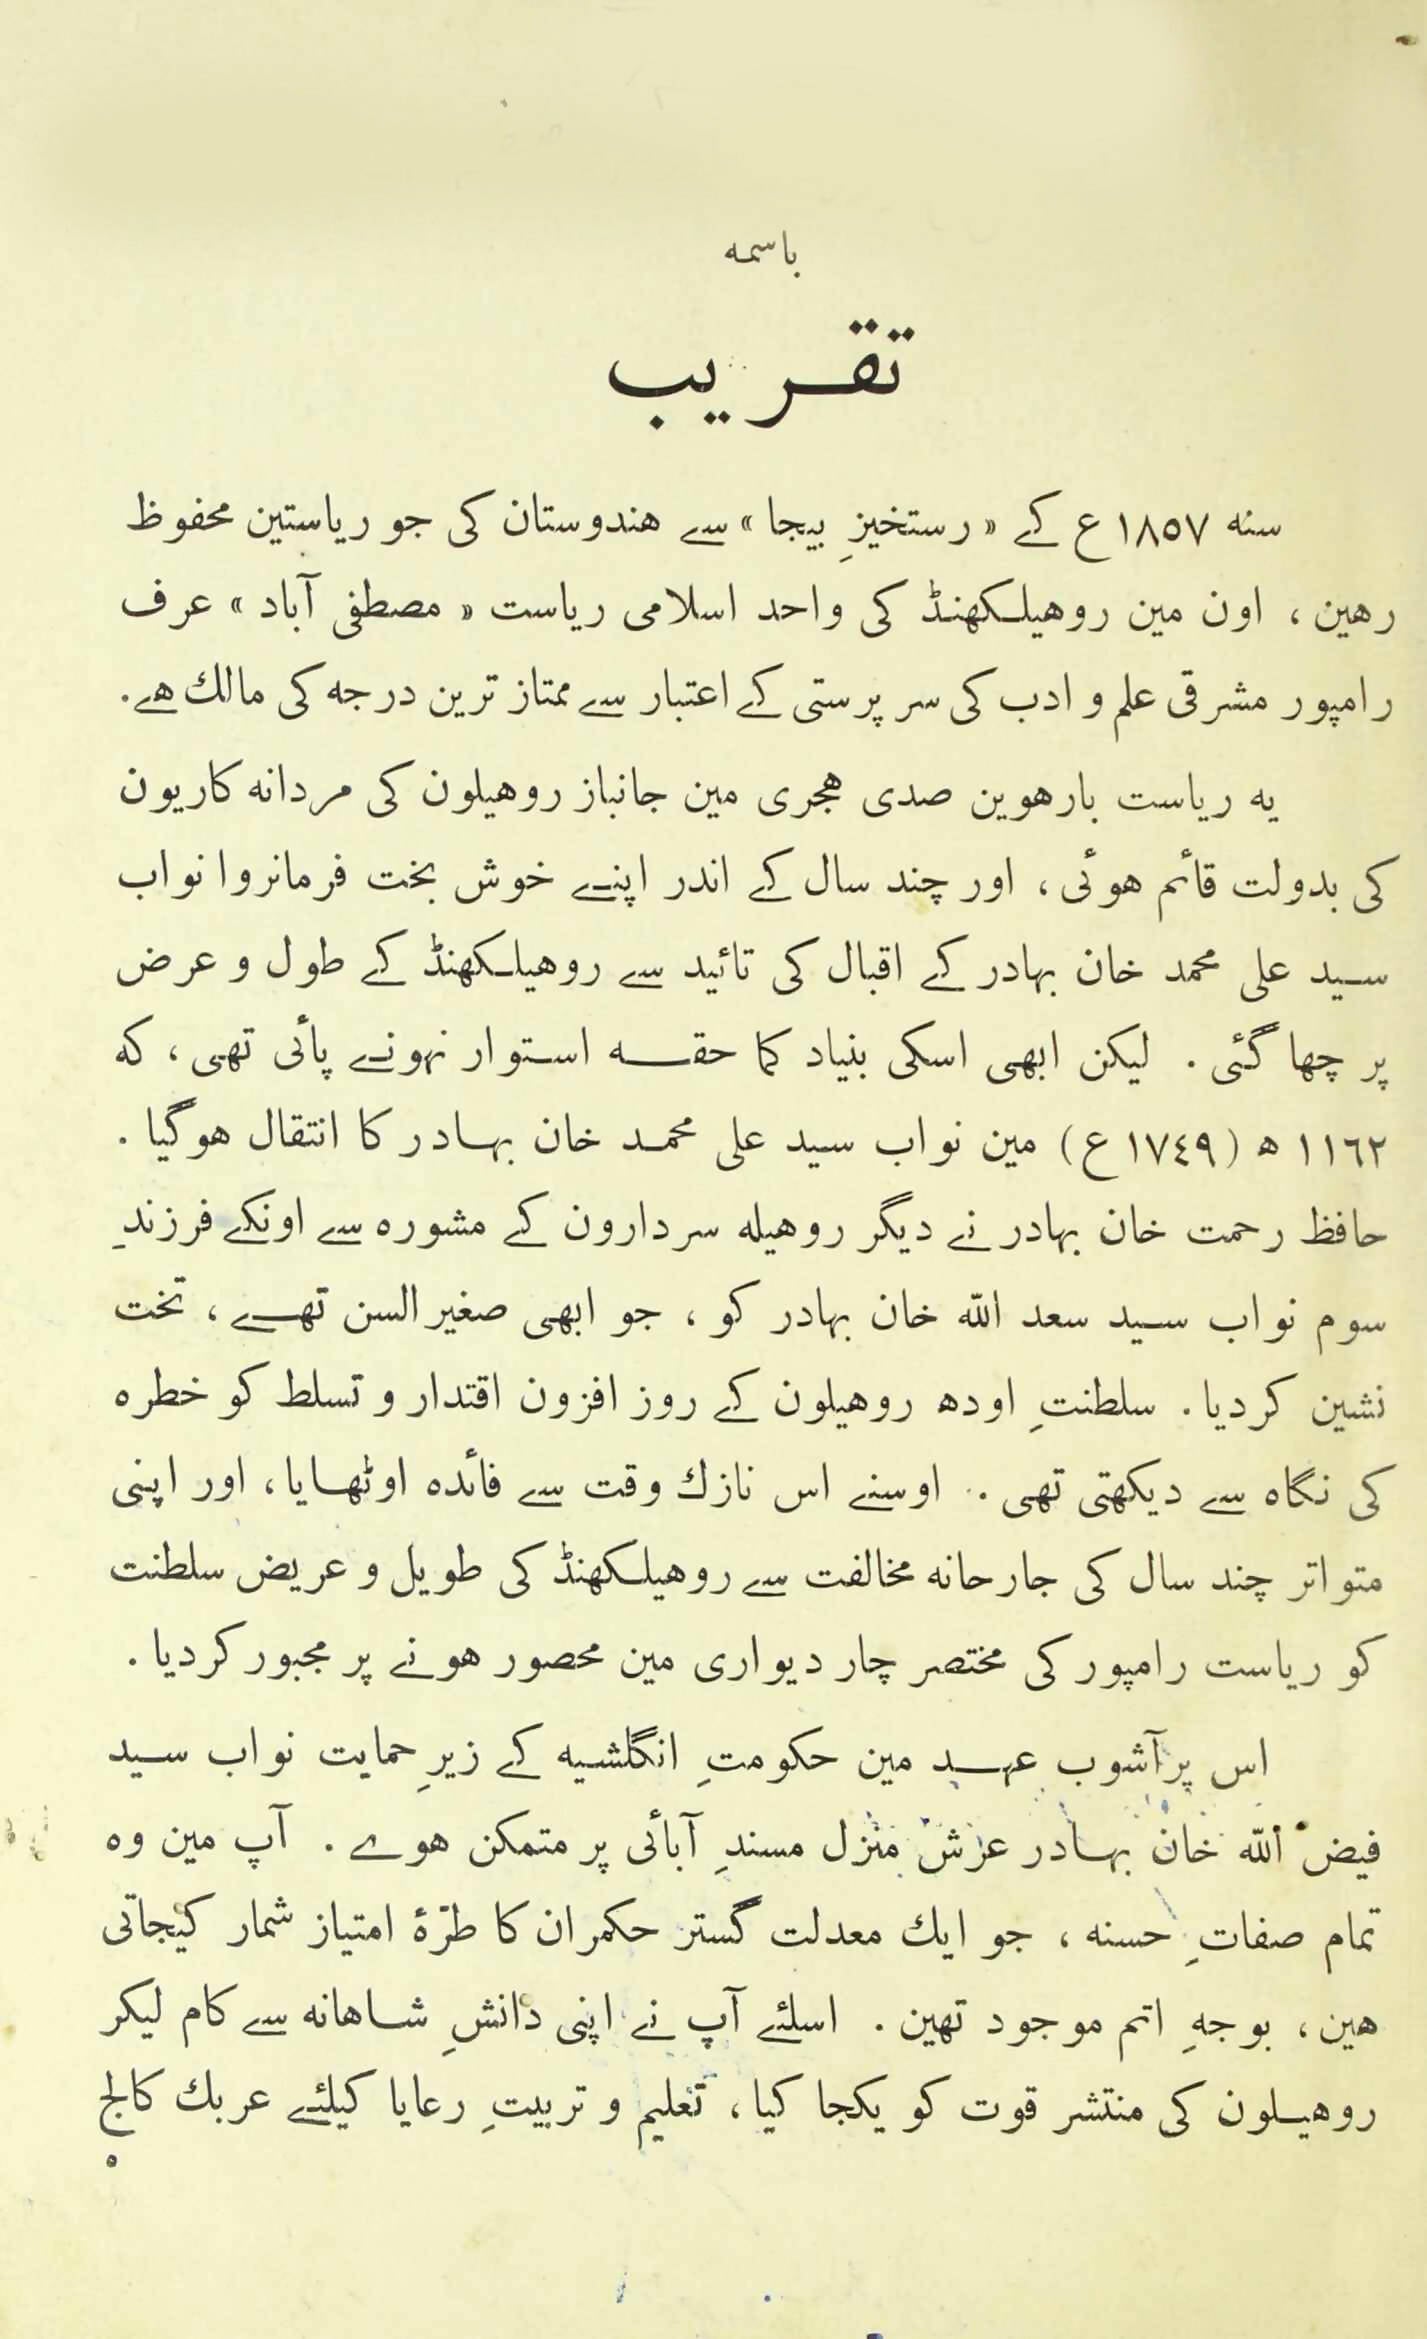 باسمه
تقریب
سنه ۱۸۵۷ ع کے « رستخیزِ بیجا » سے هندوستان کی جو ریاستین محفوظ
رهین ، اون مین روهیلکھنڈ کی واحد اسلامی ریاست « مصطفی آباد » عرف
رامپور مشرقی علم و ادب کی سر پرستی کے اعتبار سے ممتاز ترین درجه کی مالك هے.
یه ریاست بارهوین صدی هجری مین جانباز روهیلون کی مردانه کاریون
کی بدولت قائم هوئی ، اور چند سال کے اندر اپنے خوش بخت فرمانروا نواب
سید علی محمد خان بهادر کے اقبال کی تائید سے روهیلکھنڈ کے طول و عرض
پر چھا گئی . لیکن ابھی اسکی بنیاد کما حقه استوار نہونے پائی تھی ، که
۱۱٦۲ ه (۱۷٤۹ ع) مین نواب سید علی محمد خان بهادر کا انتقال هوگیا .
حافظ رحمت خان بهادر نے دیگر روهیله سردارون کے مشوره سے اونکے فرزندِ
سوم نواب سید سعد الله خان بهادر کو ، جو ابھی صغیر السن تھے ، تخت
نشین کردیا . سلطنتِ اودھ روهیلون کے روز افزون اقتدار و تسلط کو خطره
کی نگاه سے دیکھتی تھی . اوسنے اس نازك وقت سے فائده اوٹھایا ، اور اپنی
متواتر چند سال کی جارحانه مخالفت سے روهیلکھنڈ کی طویل و عریض سلطنت
کو ریاست رامپور کی مختصر چار دیواری مین محصور هونے پر مجبور کردیا .
اس پرآشوب عہد مین حکومتِ انگلشیه کے زیرِ حمایت نواب سید
فیض الله خان بهادر عرش منزل مسندِ آبائی پر متمکن هوے . آپ مین وه
تمام صفاتِ حسنه ، جو ایك معدلت گستر حکمران کا طرّۂ امتیاز شمار کیجاتی
هین ، بوجهِ اتم موجود تھین . اسلئے آپ نے اپنی دانشِ شاهانه سے کام لیکر
روهیلون کی منتشر قوت کو یکجا کیا ، تعلیم و تربیتِ رعایا کیلئے عربك کالج